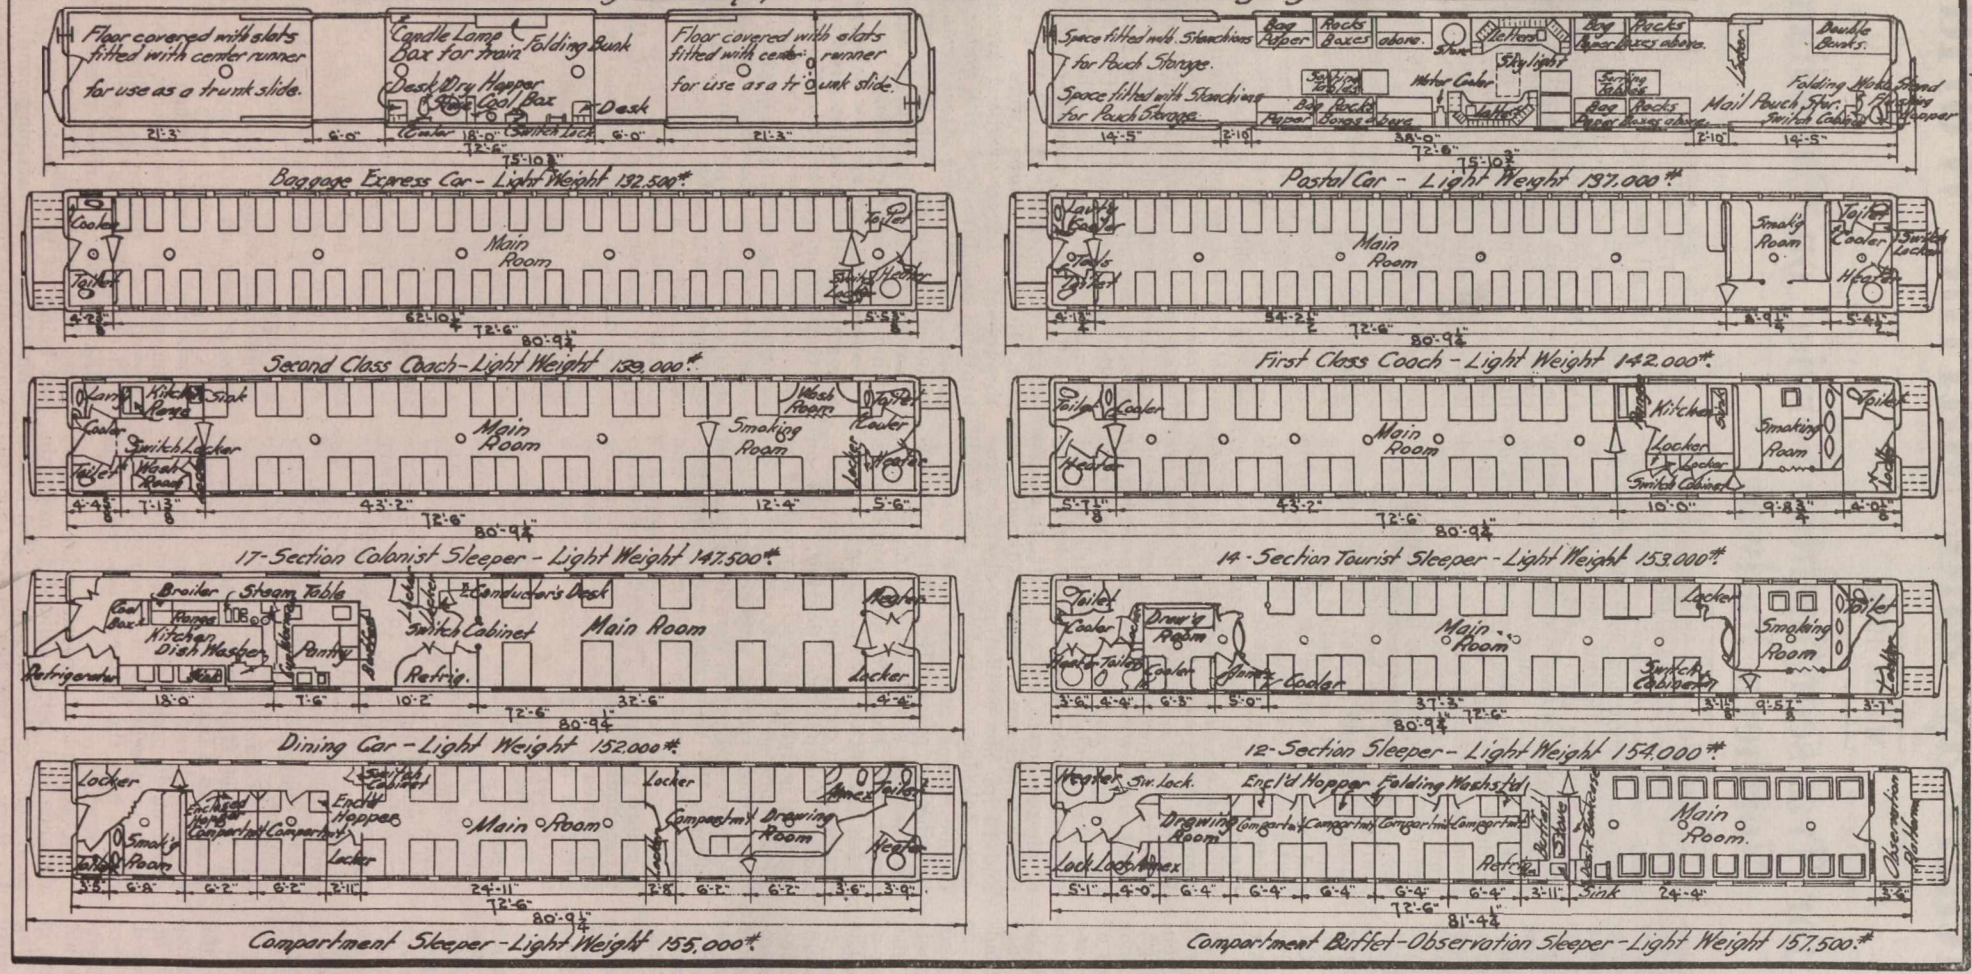 Floor covered with slats
fitted with center runner
for use as a trunk slide.
Candle Lamp
Box for train
Folding Bunk
Desk Dry Hopper
Stove Coal Box
Desk
Cooler
Switch Lock.
Floor covered with slats
fitted with center runner
for use as a trunk slide.
21'-3" 6'-0" 18'-0" 6'-0" 21'-3"
72'-6"
75'-10 3/4"
Baggage Express Car - Light Weight 132.500#.
Space fitted with Stanchions
for Pouch Storage.
Space fitted with Stanchions
for Pouch Storage.
Bag Racks
Paper Boxes above.
Stove
Letters
Skylight
Bag Racks
Paper Boxes above.
Locker
Double
Bunks.
Sorting
Tables
Water Cooler
Sorting
Tables
Folding Wash Stand
Mail Pouch Stor.
Switch Cabinet
Hopper
Bag Racks
Paper Boxes above
Letters
Bag Racks
Paper Boxes above
14'-5" 2'-10" 38'-0" 2'-10" 14'-5"
72'-6"
75'-10 3/4"
Postal Car - Light Weight 137.000#.
Cooler
Toilet
Main
Room
Toilet
Switch
Locker
Heater
4'-2 3/8" 62'-10 1/4" 5'-5 3/8"
72'-6"
80'-9 1/4"
Second Class Coach - Light Weight 139.000#.
Lav'y
Cooler
Tools
Toilet
Main
Room
Smok'g
Room
Toilet
Cooler
Switch
Locker
Heater
4'-1 3/4" 54'-2 1/2" 8'-9 1/4" 5'-4 1/2"
72'-6"
80'-9 1/4"
First Class Coach - Light Weight 142.000#.
Lav.
Kitchen
Range
Sink
Cooler
Switch Locker
Toilet
Wash
Room
Locker
Main
Room
Smoking
Room
Wash
Room
Toilet
Cooler
Locker
Heater
4'-4 5/8" 7'-1 3/8" 43'-2" 12'-4" 5'-6"
72'-6"
80'-9 1/4"
17-Section Colonist Sleeper - Light Weight 147.500#.
Toilet
Cooler
Heater
Main
Room
Range
Kitchen
Sink
Locker
Locker
Switch Cabinet
Smoking
Room
Toilet
Locker
5'-7 1/8" 43'-2" 10'-0" 9'-8 3/4" 4'-0 1/8"
72'-6"
80'-9 1/4"
14-Section Tourist Sleeper - Light Weight 153.000#.
Broiler
Steam Table
Coal
Box
Range
Kitchen
Dish Washer
Refrigerator
Sink
Pantry
Buffet
Locker
Locker
Conductor's Desk
Switch Cabinet
Refrig.
Main Room
Heater
Locker
18'-0" 7'-6" 10'-2" 32'-6" 4'-4"
72'-6"
80'-9 1/4"
Dining Car - Light Weight 152.000#.
Toilet
Cooler
Heater
Toilet
Locker
Draw'g
Room
Cooler
Annex
Cooler
Main
Room
Locker
Switch
Cabinet
Smoking
Room
Toilet
Locker
3'-6" 4'-4" 6'-3" 5'-0" 37'-3" 3'-1 1/8" 9'-5 7/8" 3'-7"
72'-6"
80'-9 1/4"
12-Section Sleeper - Light Weight 154.000#.
Locker
Smok'g
Room
Toilet
Enclosed
Hopper
Compartm't Compartm't
Switch
Cabinet
Encl'd
Hopper
Locker
Main Room
Locker
Locker
Compartm't
Drawing
Room
Annex
Toilet
Heater
3'-5" 6'-8" 6'-2" 6'-2" 2'-11" 24'-11" 2'-8" 6'-2" 6'-2" 3'-6" 3'-9"
72'-6"
80'-9 1/4"
Compartment Sleeper - Light Weight 155.000#.
Heater
Sw. Lock.
Encl'd Hopper
Folding Washst'd
Drawing
Room
Compartm't Compartm't Compartm't Compartm't
Lock. Lock. Annex
Refrig.
Buffet
Stove
Desk Bookcase
Sink
Main
Room.
Observation
Platform
5'-1" 4'-0" 6'-4" 6'-4" 6'-4" 6'-4" 6'-4" 3'-11" 24'-4" 3'-6"
72'-6"
81'-4 1/4"
Compartment Buffet-Observation Sleeper - Light Weight 157.500#.